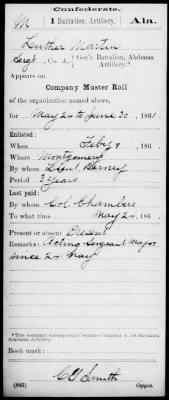 Confederate.
M
1 Battalion, Artillery.
Ala.
Luther Martin
Sergt, Co. A,
Gee's Battalion, Alabama Artillery.*
Appears on
Company Muster Roll
of the organization named above,
for May 24 to June 30, 1861.
Enlisted:
When Feby 9, 186 .
Where Montgomery
By whom Lieut. Barney
Period 3 Years
Last paid:
By whom Col. Chambers
To what time May 24, 186 .
Present or absent Present
Remarks: Acting Sergeant Major
since 24 May
*This company subsequently became Company A, 1st Battalion
Alabama Artillery.
Book mark:
(642)
Copyist.